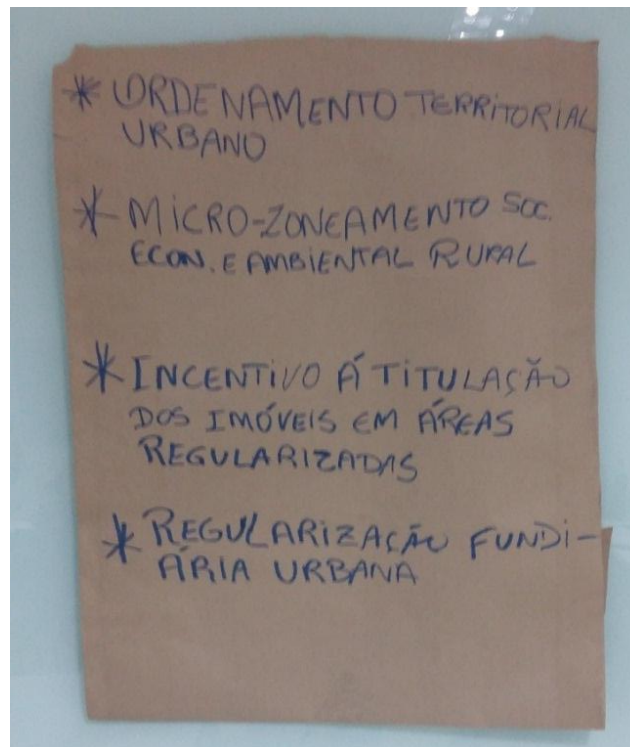 * ORDENAMENTO TERRITORIAL
URBANO
* MICRO-ZONEAMENTO SOC.
ECON. E AMBIENTAL RURAL
* INCENTIVO Á TITULAÇÃO
DOS IMÓVEIS EM ÁREAS
REGULARIZADAS
* REGULARIZAÇÃO FUNDI-
ÁRIA URBANA